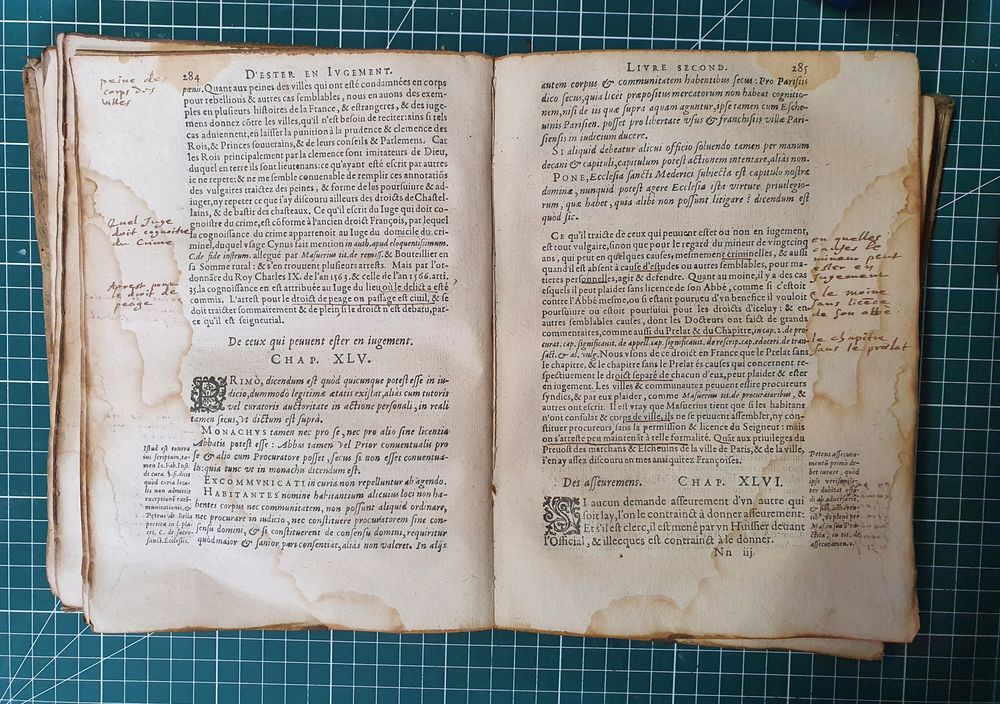 peine des
corps des
villes
284 D'ESTER EN IVGEMENT.
pœnis. Quant aux peines des villes qui ont esté condamnées en corps
pour rebellions & autres cas semblables, nous en auons des exem-
ples en plusieurs histoires de la France, & estrangeres, & des iuge-
mens donnez côtre les villes, qu'il n'est besoin de reciter: ains si tels
cas aduiennent, en laisser la punition à la prudence & clemence des
Rois, & Princes souuerains, & de leurs conseils & Parlemens. Car
les Rois principalement par la clemence sont imitateurs de Dieu,
duquel en terre ils sont lieutenans: ce qu'ayant esté escrit par autres
ie ne repete: & ne me semble conuenable de remplir ces annotatiõs
des vulgaires traictez des peines, & forme de les poursuiure & ad-
iuger, ny repeter ce que i'ay discouru ailleurs des droicts de Chastel-
lains, & de bastir des chasteaux. Ce qu'il escrit du Iuge qui doit co-
gnoistre du crime, est cõforme à l'ancien droict François, par lequel
la cognoissance du crime appartenoit au Iuge du domicile du cri-
minel, duquel vsage Cynus fait mention in auth. apud eloquentissimum.
C. de fide instrum. allegué par Masuerius tit. de remiss. & Bouteillier en
sa Somme rural: & s'en trouuent plusieurs arrests. Mais par l'or-
donnãce du Roy Charles IX. de l'an 1563. & celle de l'an 1566. art.
35. la cognoissance en est attribuée au Iuge du lieu où le delict a esté
commis. L'arrest pour le droict de peage ou passage est ciuil, & se
doit traicter sommairement & de plein si le droict n'est debatu, par-
ce qu'il est seigneurial.
Quel Juge
doit cognoitre
du Crime
Arrest pour
le droit de
peage
De ceux qui peuuent ester en iugement.
CHAP. XLV.
PRIMÒ, dicendum est quòd quicunque potest esse in iu-
dicio, dummodo legitimæ ætatis existat, aliàs cum tutoris
vel curatoris auctoritate in actione personali, in reali
tamen secus, vt dictum est suprà.
MONACHVS tamen nec pro se, nec pro alio sine licentia
Abbatis potest esse: Abbas tamen vel Prior conuentualis pro
se & alio cum Procuratore posset, secus si non esset conuentua-
lis: quia tunc vt in monacho dicendum est.
EXCOMMVNICATI in curia non repelluntur ab agendo.
HABITANTES nomine habitantium alicuius loci non ha-
bentes corpus nec communitatem, non possunt aliquid ordinare,
nec procurare in iudicio, nec constituere procuratorem sine con-
sensu domini, & si constituerent de consensu domini, requiritur
quòd maior & sanior pars consentiat, aliàs non valeret. In aliis
Istud est contra
ius scriptum, ta-
men Io. Fab. Inst.
de cura. §. si dicit
quòd curia laica-
lis non admittit
exceptione excõ-
municationis, &
Petrus de Bella
pertica in l. pla-
cet, C. de sacro-
sanct. Ecclesiis.
LIVRE SECOND. 285
autem corpus & communitatem habentibus secus: Pro Parisiis
dico secus, quia licèt præpositus mercatorum non habeat cognitio-
nem, nisi de iis quæ supra aquam aguntur, ipse tamen cum Esche-
uinis Parisien. posset pro libertate vsus & franchisiis villæ Pari-
siensis in iudicium ducere.
SI aliquid debeatur alicui officio soluendo tamen per manum
decani & capituli, capitulum potest actionem intentare, aliàs non.
PONE, Ecclesia sancti Mederici subiecta est capitulo nostræ
dominæ, nunquid potest agere Ecclesia ista virtute priuilegio-
rum, quæ habet, quia alibi non possunt litigare? dicendum est
quòd sic.
CE qu'il traicte de ceux qui peuuent ester ou non en iugement,
est tout vulgaire, sinon que pour le regard du mineur de vingtcinq
ans, qui peut en quelques causes, mesmement criminelles, & aussi
quand il est absent à cause d'estudes ou autres semblables, pour ma-
tieres personnelles, agir & defendre. Quant au moine, il y a des cas
esquels il peut plaider sans licence de son Abbé, comme si c'estoit
contre l'Abbé mesme, ou si estant pourueu d'vn benefice il vouloit
poursuiure ou estoit poursuiui pour les droicts d'iceluy: & en
autres semblables causes, dont les Docteurs ont faict de grands
commentaires, comme aussi du Prelat & du Chapitre, in cap. 1. de pro-
curat. cap. significauit. de appell. cap. significauit. de rescrip. cap. edoceri. de tran-
sact. & al. vulg. Nous vsons de ce droict en France que le Prelat sans
le chapitre, & le chapitre sans le Prelat és causes qui concernent re-
spectiuement le droict separé de chacun d'eux, peut plaider & ester
en iugement. Les villes & communautez peuuent eslire procureurs
syndics, & par eux plaider, comme Masuerius tit. de procuratoribus, &
autres ont escrit. Il est vray que Masuerius tient que si les habitans
n'ont consulat & corps de ville, ils ne se peuuent assembler, ny con-
stituer procureurs, sans la permission & licence du Seigneur: mais
on s'arreste peu maintenãt à telle formalité. Quãt aux priuileges du
Preuost des marchans & Escheuins de la ville de Paris, & de la ville,
i'en ay assez discouru en mes antiquitez Françoises.
en quelles
causes le
mineur peut
ester en
Jugement
& le moine
sans licence
de son abbé
le chapitre
sans le prelat
Des asseuremens. CHAP. XLVI.
SI aucun demande asseurement d'vn autre qui
soit lay, l'on le contrainct à donner asseurement:
Et s'il est clerc, il est mené par vn Huissier deuant
l'Official, & illecques est contrainct à le donner.
Nn iij.
Petens assecura-
mentũ primò de-
bet iurare, quòd